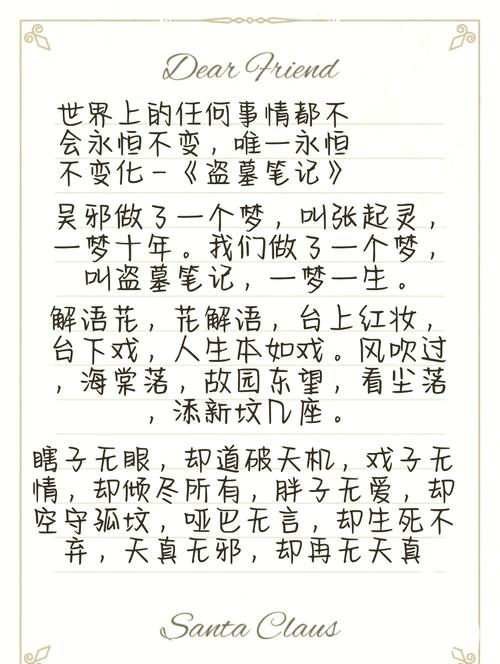 Dear Friend
世界上的任何事情都不
会永恒不变，唯一永恒
不变化-《盗墓笔记》
吴邪做了一个梦，叫张起灵，
一梦十年。我们做了一个梦，
叫盗墓笔记，一梦一生。
解语花，花解语，台上红妆，
台下戏，人生本如戏。风吹过
，海棠落，故园东望，看尘落
，添新坟几座。
瞎子无眼，却道破天机，戏子无
情，却倾尽所有，胖子无爱，却
空守孤坟，哑巴无言，却生死不
弃，天真无邪，却再无天真
Santa Claus